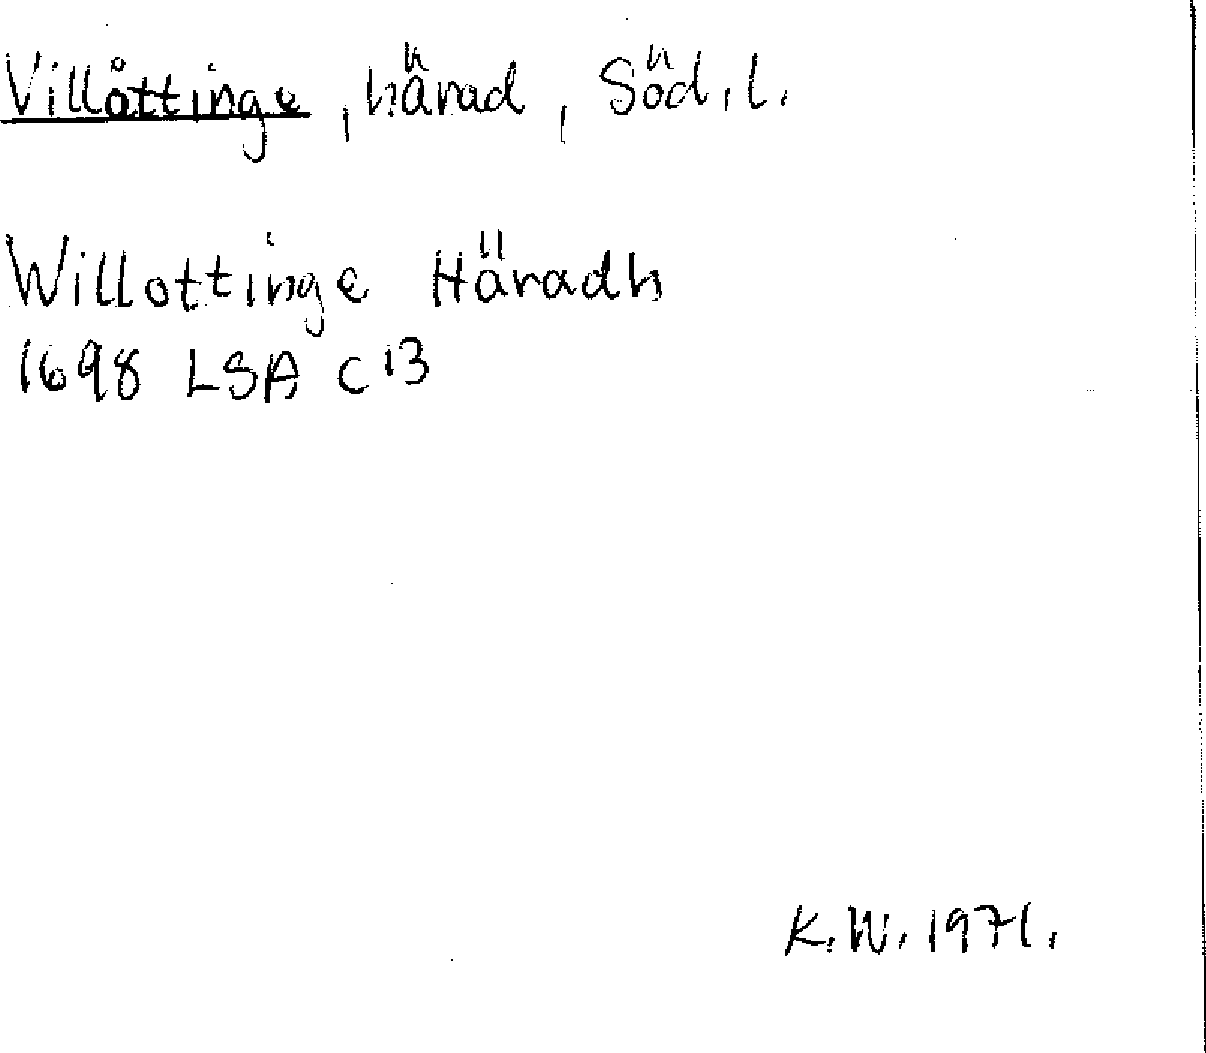 Villåttinge, härad, Söd.l.
Willottinge Häradh
1698 LSA C13
K.W. 1971.